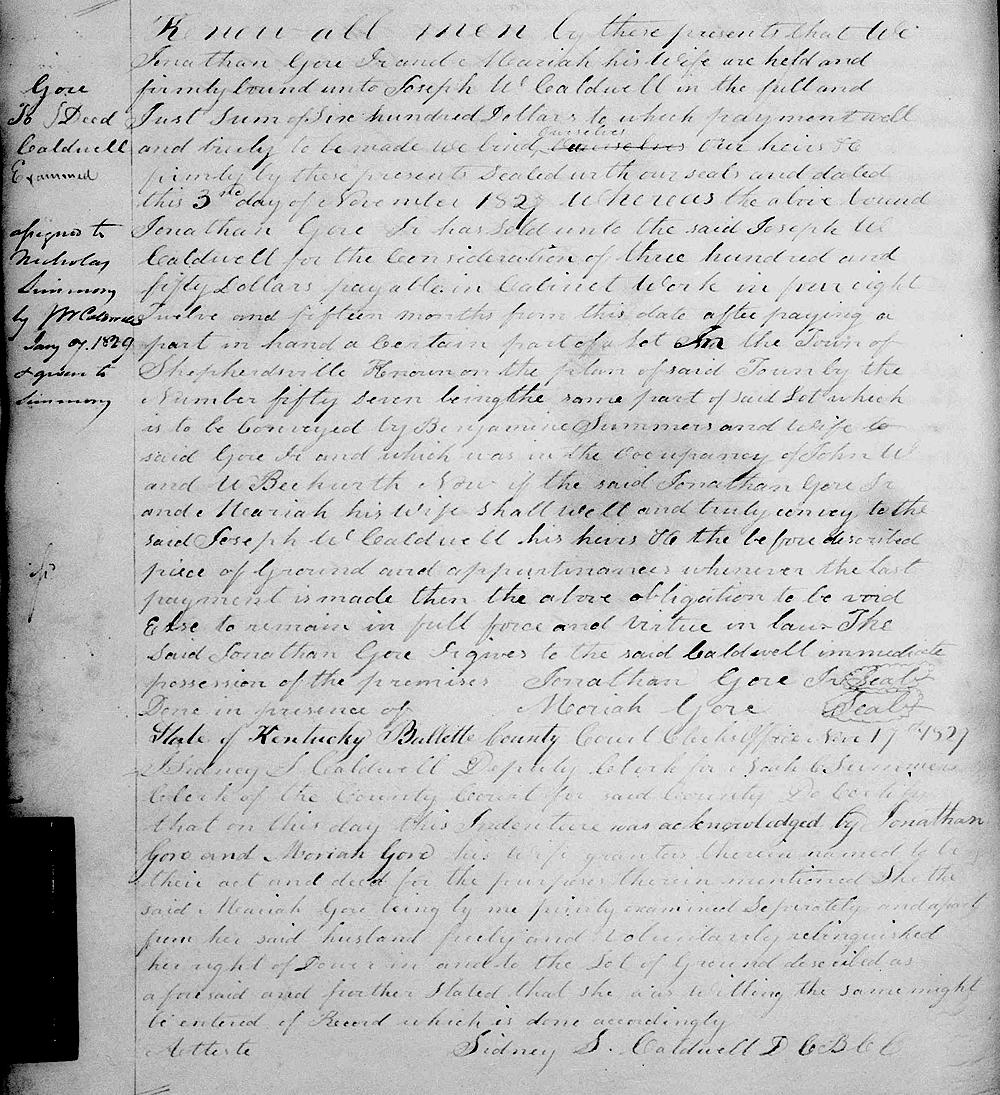 Know all men by these presents that We
Jonathan Gore Jr and Mariah his Wife are held and
firmly bound unto Joseph W Caldwell in the full and
Just Sum of Six hundred Dollars to which payment well
and truly to be made We bind ourselves Our heirs &c
firmly by these presents Sealed with our seals and dated
this 3rd day of November 1827 Whereas the above bound
Jonathan Gore Jr has Sold unto the said Joseph W
Caldwell for the Consideration of three hundred and
fifty Dollars payable in Cabinet Work in four eight
Twelve and fifteen months from this date after paying a
part in hand a Certain part of a Lot In the Town of
Shepherdsville Known on the plan of said Town by the
Number fifty Seven being the same part of said Lot which
is to be Conveyed by Benjamine Summers and Wife to
said Gore Jr and which was in the Occupancy of John W
and W Beckurth Now if the said Jonathan Gore Jr
and Mariah his Wife shall well and truly convey to the
said Joseph W Caldwell his heirs &c the before described
piece of Ground and appurtinances whenever the last
payment is made then the above obligation to be void
Else to remain in full force and virtue in law The
Said Jonathan Gore Jr gives to the said Caldwell immediate
possession of the premises Jonathan Gore Jr Seal
Done in presence of Moriah Gore Seal
State of Kentucky Bullitt County Court Clerks Office Nov 17th 1827
I Sidney S Caldwell Deputy Clerk for Noah C Summers
Clerk of the County Court for said County Do Certify
that on this day this Indenture was acknowledged by Jonathan
Gore and Moriah Gore his Wife grantors therein named to be
their act and deed for the purposes therein mentioned She the
said Mariah Gore being by me privily examined Seperately and apart
from her said husband freely and Voluntarily relinquished
her right of Dower in and to the Lot of Ground described as
aforesaid and further Stated that she was Willing the same might
be entered of Record which is done accordingly
Atteste Sidney S. Caldwell D C B C C
Gore
To Deed
Caldwell
Examined
assigned to
Nicholas
Simmons
by JW Caldwell
Jany 07. 1829
& given to
Simmons